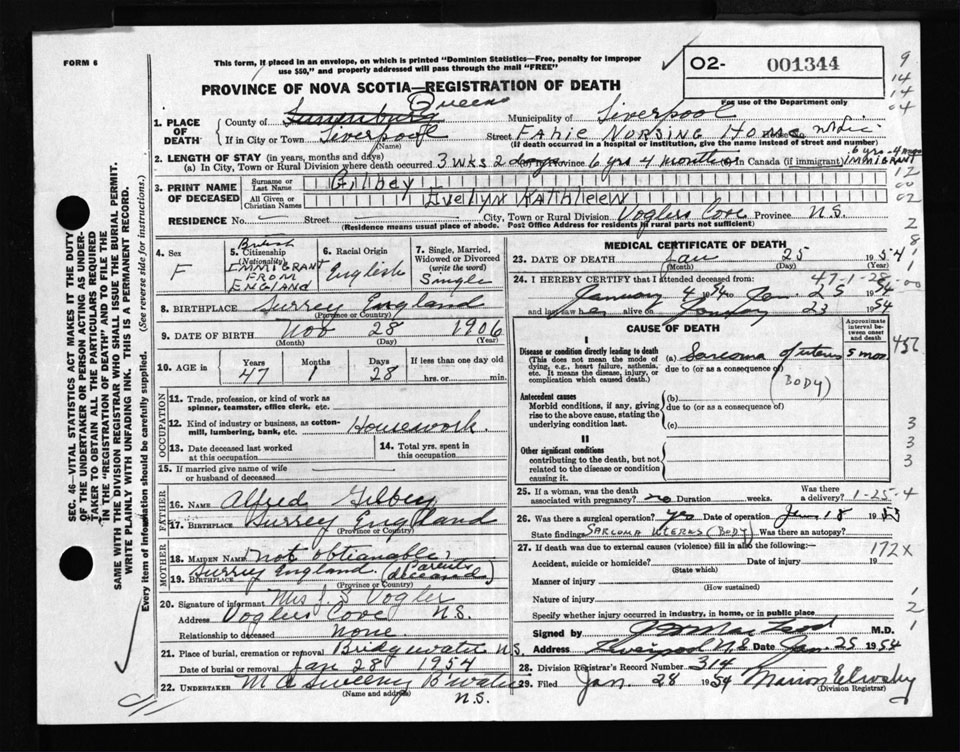 FORM 6
This form, if placed in an envelope, on which is printed "Dominion Statistics—Free, penalty for improper
use $50," and properly addressed will pass through the mail "FREE"
O2- 001344
For use of the Department only
PROVINCE OF NOVA SCOTIA—REGISTRATION OF DEATH
1. PLACE OF DEATH
County of Lunenburg Queens
Municipality of Liverpool
If in City or Town Liverpool
(Name)
Street Fahie Nursing Home
(If death occurred in a hospital or institution, give the name instead of street and number)
2. LENGTH OF STAY (in years, months and days)
(a) In City, Town or Rural Division where death occurred 3 wks 2 days Province 6 yrs 4 months in Canada (if immigrant) 6 yrs - 4 mos IMMIGRANT
3. PRINT NAME OF DECEASED
Surname or Last Name Gilbey
All Given or Christian Names Evelynn Kathleen
RESIDENCE No. — Street — City, Town or Rural Division Voglers Cove Province N.S.
(Residence means usual place of abode. Post Office Address for residents in rural parts not sufficient)
4. Sex F
5. Citizenship (Nationality) British IMMIGRANT FROM ENGLAND
6. Racial Origin English
7. Single, Married, Widowed or Divorced (write the word) Single
8. BIRTHPLACE Surrey England
(Province or Country)
9. DATE OF BIRTH Nov 28 1906
(Month) (Day) (Year)
10. AGE in Years 47 Months 1 Days 28 If less than one day old hrs. or min.
OCCUPATION
11. Trade, profession, or kind of work as spinner, teamster, office clerk, etc.
12. Kind of industry or business, as cotton-mill, lumbering, bank, etc. Housework.
13. Date deceased last worked at this occupation
14. Total yrs. spent in this occupation
15. If married give name of wife or husband of deceased
FATHER
16. NAME Alfred Gilbey
17. BIRTHPLACE Surrey England
(Province or Country)
MOTHER
18. MAIDEN NAME "not obtianable"
19. BIRTHPLACE Surrey England. (Parents deceased)
(Province or Country)
20. Signature of informant Mrs J. S Vogler
Address Voglers Cove N.S.
Relationship to deceased None.
21. Place of burial, cremation or removal Bridgewater N.S.
Date of burial or removal Jan 28 1954
22. UNDERTAKER M A Sweeny B'water N.S.
(Name and address)
MEDICAL CERTIFICATE OF DEATH
23. DATE OF DEATH Jan 25 1954
(Month) (Day) (Year)
47-1-28
24. I HEREBY CERTIFY that I attended deceased from:
January 4 1954 to Jan. 25 1954
and last saw her alive on January 23 1954
CAUSE OF DEATH
Approximate interval between onset and death
I
Disease or condition directly leading to death
(This does not mean the mode of dying, e.g., heart failure, asthenia, etc. It means the disease, injury, or complication which caused death.)
(a) Sarcoma of uterus 5 mos.
due to (or as a consequence of)
(BODY)
Antecedent causes
Morbid conditions, if any, giving rise to the above cause, stating the underlying condition last.
(b)
due to (or as a consequence of)
(c)
II
Other significant conditions
contributing to the death, but not related to the disease or condition causing it.
25. If a woman, was the death associated with pregnancy? no Duration weeks. Was there a delivery?
1-25-4
26. Was there a surgical operation? yes Date of operation 18 1953
State findings SARCOMA UTERUS (BODY) Was there an autopsy?
27. If death was due to external causes (violence) fill in also the following:—
172X
Accident, suicide or homicide? Date of injury 19
(State which)
Manner of injury
(How sustained)
Nature of injury
Specify whether injury occurred in industry, in home, or in public place
Signed by M.D.
Address Liverpool N.S Date Jan. 25 1954
28. Division Registrar's Record Number 314
29. Filed Jan. 28 1954
(Division Registrar)
SEC. 46—VITAL STATISTICS ACT MAKES IT THE DUTY
OF THE UNDERTAKER OR PERSON ACTING AS UNDER-
TAKER TO OBTAIN ALL THE PARTICULARS REQUIRED
IN THE "REGISTRATION OF DEATH" AND TO FILE THE
SAME WITH THE DIVISION REGISTRAR WHO SHALL ISSUE THE BURIAL PERMIT.
WRITE PLAINLY WITH UNFADING INK. THIS IS A PERMANENT RECORD.
Every item of information should be carefully supplied. (See reverse side for instructions.)